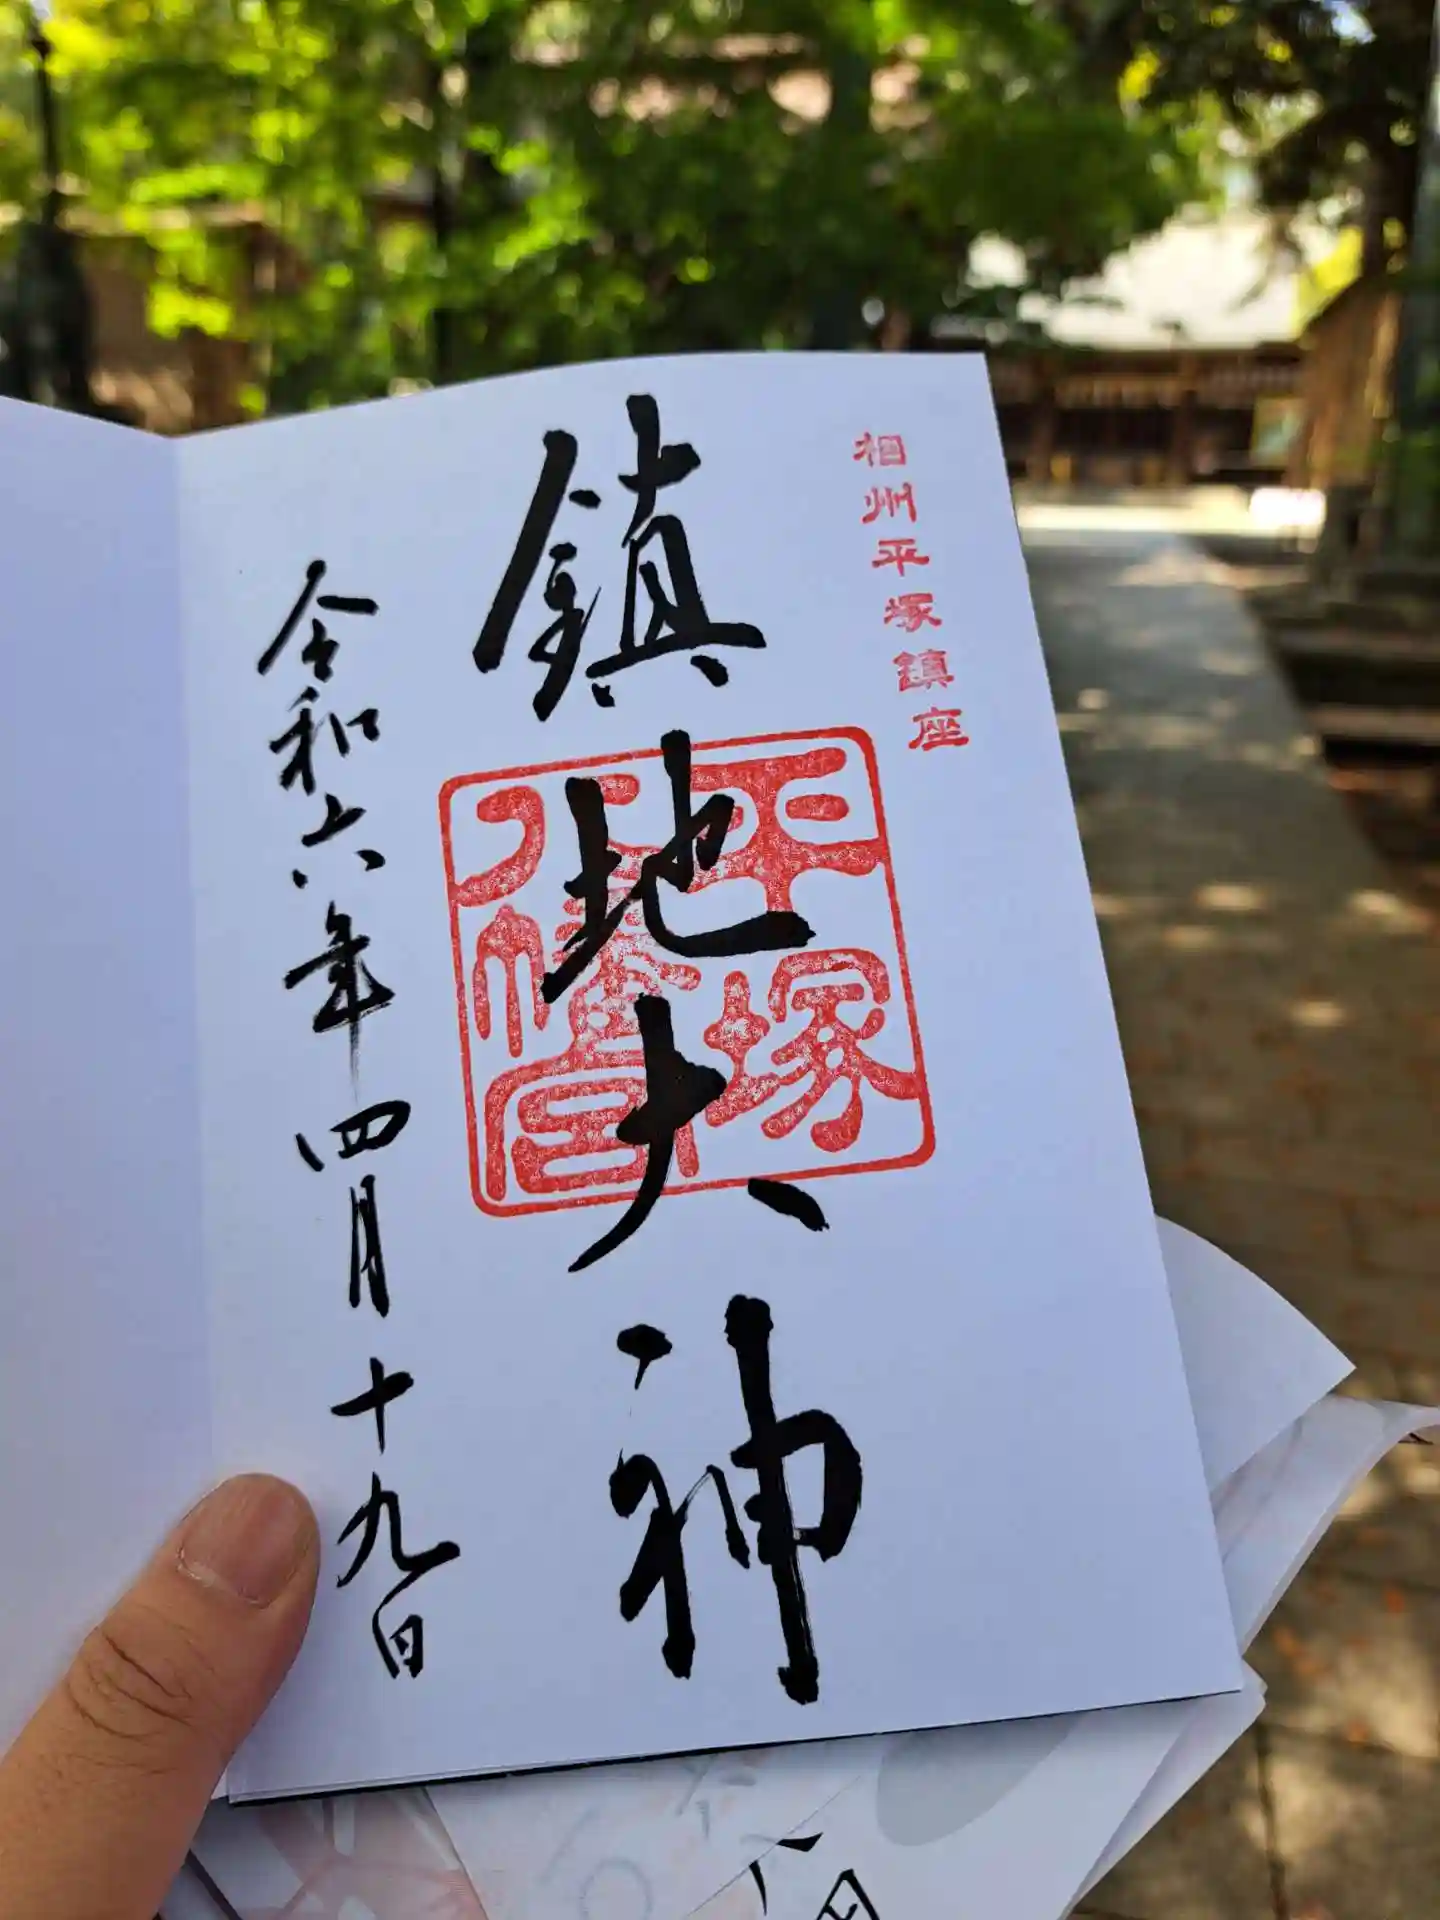 相州平塚鎮座
鎮地大神
平塚
八幡宮
令和六年四月十九日